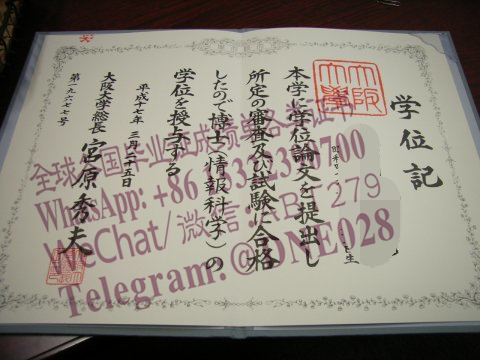 学位記
大阪大學
生
本学に学位論文を提出し
所定の審査及び試験に合格
したので博士(情報科学)の
学位を授与する
平成十七年三月二十五日
大阪大学総長 宮原秀夫
全球各国毕业证成绩单各类证书
WhatsApp: +86
WeChat/微信: 279
Telegram: @DNE028